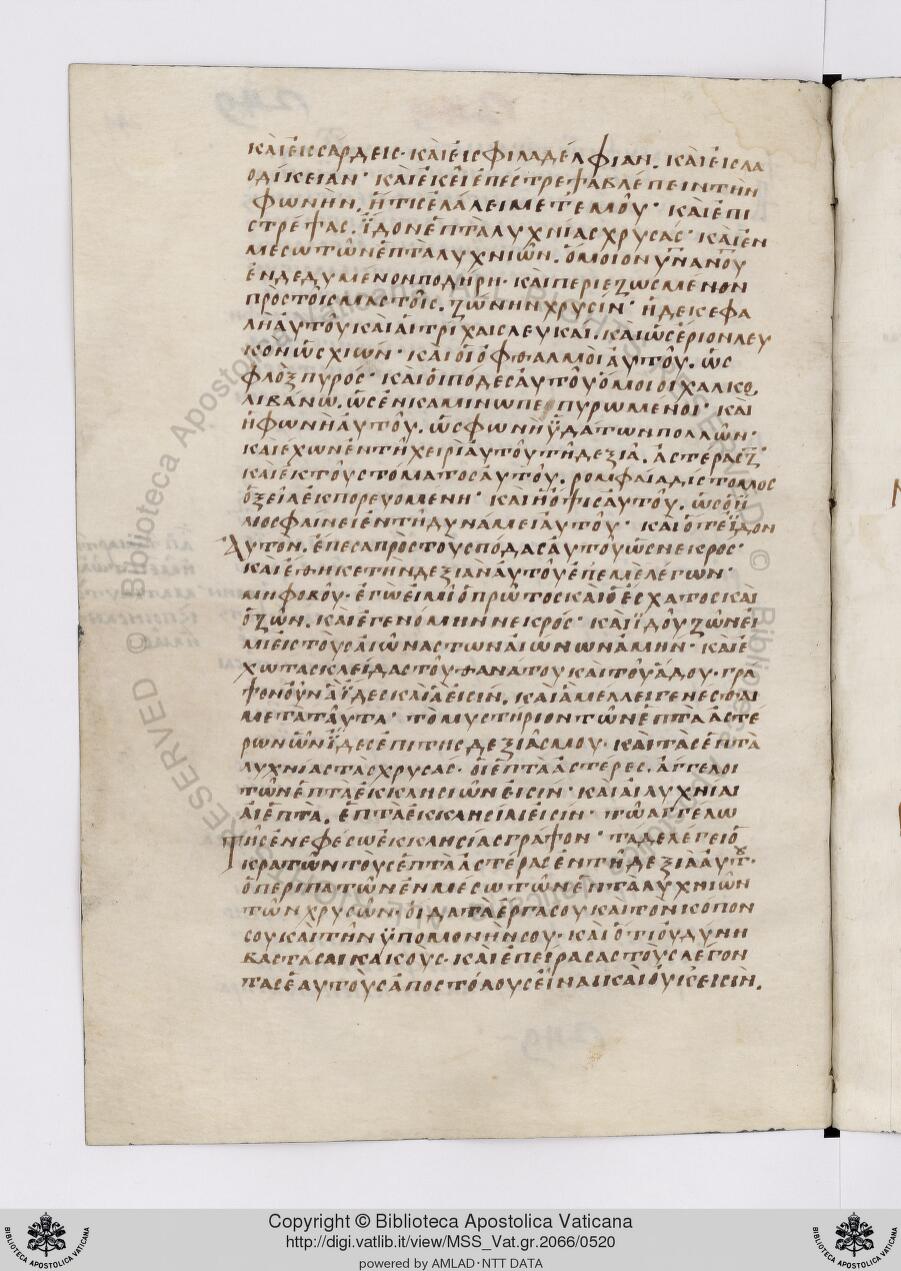 ΚΑῚ ἘΙC CΆΡΔΕΙC· ΚΑῚ ἘΙC ΦΙΛΑΔΈΛΦΙΑΝ. ΚΑῚ ἘΙC ΛΑ
ΟΔΊΚΕΙΑΝ· ΚΑῚ ἘΚΕῚ ἘΠΕCΤΡΕΨΑ ΒΛΈΠΕΙΝ ΤῊΝ
ΦΩΝΗΝ. ἭΤΙC ἘΛΆΛΕΙ ΜΕΤ ΕΜΟΥ͂· ΚΑῚ ἘΠΙ
CΤΡΈΨΑC. ΪΔΟΝ ἙΠΤᾺ ΛΥΧΝΊΑC ΧΡΥCΑC· ΚΑῚ ἘΝ
ΜΕCΩ ΤΩ͂Ν ἙΠΤᾺ ΛΥΧΝΙΩ͂Ν. ὍΜΟΙΟΝ ΥΝ ΑΝΟΥ
ἘΝΔΕΔΥΜΈΝΟΝ ΠΟΔΗΡΗ· ΚΑῚ ΠΕΡΙΕΖΩCΜΈΝΟΝ
ΠΡΟC ΤΟΙC ΜΑCΤΟΙ͂C. ΖΏΝΗΝ ΧΡΥCΙΝ· Ἡ ΔΕ ΚΕΦΑ
ΛῊ ἈΥΤΟΥ͂ ΚΑῚ ἉΙ ΤΡΊΧΑΙC ΛΕΥΚΑΙ. ΚΑῚ ὩC ἘΡΙΟΝ ΛΕΥ
ΚΟΝ ὩC ΧΙΩΝ· ΚΑῚ ΟἹ ὈΦΘΑΛΜΟῚ ἈΥΤΟΥ͂. ὩC
ΦΛῸΞ ΠΥΡΟC· ΚΑῚ ὉΙ ΠΟΔΕC ἈΥΤΟΥ͂ ὍΜΟΙΟΙ ΧΑΛΚΟ
ΛΙΒΑΝΩ. ὩC ἘΝ ΚΑΜΙΝΩ ΠΕΠΥΡΩΜΈΝΟΙ· ΚΑῚ
Ἡ ΦΩΝῊ ἈΥΤΟΥ͂. ὩC ΦΩΝῊ ΫΔΆΤΩΝ ΠΟΛΛΩ͂Ν·
ΚΑῚ ἘΧΩΝ ἘΝ ΤΗ͂ ΧΕΙΡῚ ἈΥΤΟΥ͂ ΤΗ͂ ΔΕΞΙΑ. ἈCΤΕΡΑC Ζ
ΚΑῚ ἘΚ ΤΟΥ͂ CΤΌΜΑΤΟC ἈΥΤΟΥ͂. ΡΟΜΦΑΊΑ ΔΊCΤΟΜΟC
ὈΞΕΙ͂Α ἘΚΠΟΡΕΥΟΜΕΝΗ· ΚΑῚ Ἡ ὌΨΙC ἈΥΤΟΥ͂. ὩC Ὁ Ἥ
ΛΙΟC ΦΑΊΝΕΙ ἘΝ ΤΗ͂ ΔΥΝΆΜΕΙ ἈΥΤΟΥ͂· ΚΑῚ ὍΤΕ ΪΔΟΝ
ἈΥΤΟΝ. ἜΠΕCΑ ΠΡῸC ΤΟῪC ΠΌΔΑC ἈΥΤΟΥ͂ ὩC ΝΕΚΡΟC·
ΚΑῚ ἜΘΗΚΕ ΤῊΝ ΔΕΞΙΑΝ ἈΥΤΟΥ͂ ἘΠ ΕΜῈ ΛΈΓΩΝ·
ΜΗ ΦΟΒΟΥ· ἘΓΏ ἘΙΜΙ Ὁ ΠΡΩ͂ΤΟC ΚΑῚ Ὁ ἜCΧΑΤΟC ΚΑῚ
Ὁ ΖΩ͂Ν. ΚΑῚ ἘΓΕΝΌΜΗΝ ΝΕΚΡΌC· ΚΑῚ ΪΔΟῪ ΖΩ͂Ν ΕΙ
ΜΙ ἘΙC ΤΟῪC ἈΙΩ͂ΝΑC ΤΩ͂Ν ἈΙΩΝΩΝ ἈΜΗΝ· ΚΑῚ Ἔ
ΧΩ ΤΑC ΚΛΕΙ͂ΔΑC ΤΟΥ͂ ΘΑΝΑΤΟΥ ΚΑῚ ΤΟΥ͂ ἍΔΟΥ· ΓΡΑ
ΨΟΝ ΟΥ͂Ν Ἃ ΪΔΕC ΚΑῚ Ἃ ἘΙCΙΝ. ΚΑῚ Ἃ ΜΕΛΛΕΙ ΓΕΝΕCΘΑΙ
ΜΕΤᾺ ΤΑΥ͂ΤΑ· ΤῸ ΜΥCΤΗΡΙΟΝ ΤΩ͂Ν ἙΠΤᾺ ἈCΤΈ
ΡΩΝ ΩΝ ΪΔΕC ἘΠῚ ΤΗC ΔΕΞΙΑ͂C ΜΟΥ· ΚΑῚ ΤᾺC ἙΠΤᾺ
ΛΥΧΝΊΑC ΤᾺC ΧΡΥCΑC· ὉΙ ἙΠΤᾺ ἈCΤΕΡΕC. ἌΓΓΕΛΟΙ
ΤΩ͂Ν ἙΠΤᾺ ἘΚΚΛΗCΙΩ͂Ν ἘΙCΙΝ· ΚΑῚ ΑΙ ΛΥΧΝΊΑΙ
ἉΙ ἙΠΤᾺ. ἙΠΤᾺ ἘΚΚΛΗCΊΑΙ ἘΙCΙΝ· ΤΩ͂ ἈΓΓΈΛΩ
ΤΗ͂C ἘΝ ἘΦΈCΩ ἘΚΚΛΗCΊΑC ΓΡΆΨΟΝ· ΤΆΔΕ ΛΈΓΕΙ Ὁ
ΚΡΑΤΩ͂Ν ΤΟῪC ἙΠΤᾺ ἈCΤΈΡΑC ἘΝ ΤΗ͂ ΔΕΞΙΑ͂ ἈΥΤΟΥ·
Ὁ ΠΕΡΙΠΑΤΩ͂Ν ἘΝ ΜΈCΩ ΤΩ͂Ν ἙΠΤᾺ ΛΥΧΝΙΩ͂Ν
ΤΩ͂Ν ΧΡΥCΩ͂Ν· ΟΙΔΑ ΤᾺ ἜΡΓΑ CΟΥ ΚΑῚ ΤΟΝ ΚΟΠΟΝ
CΟΥ ΚΑῚ ΤῊΝ ΫΠΟΜΟΝΗΝ CΟΥ· ΚΑῚ ὍΤΙ ΟΥ ΔΥΝΗ
ΒΑCΤΑCΑΙ ΚΑΚΟῪC· ΚΑῚ ἘΠΕΊΡΑCΑC ΤΟΥC ΛΈΓΟΝ
ΤΑC ἙΑΥΤΟῪC ἈΠΟCΤΌΛΟΥC ΕΙΝΑΙ ΚΑῚ ΟΥΚ ΕΙCΙΝ.
Copyright © Biblioteca Apostolica Vaticana
http://digi.vatlib.it/view/MSS_Vat.gr.2066/0520
powered by AMLAD·NTT DATA